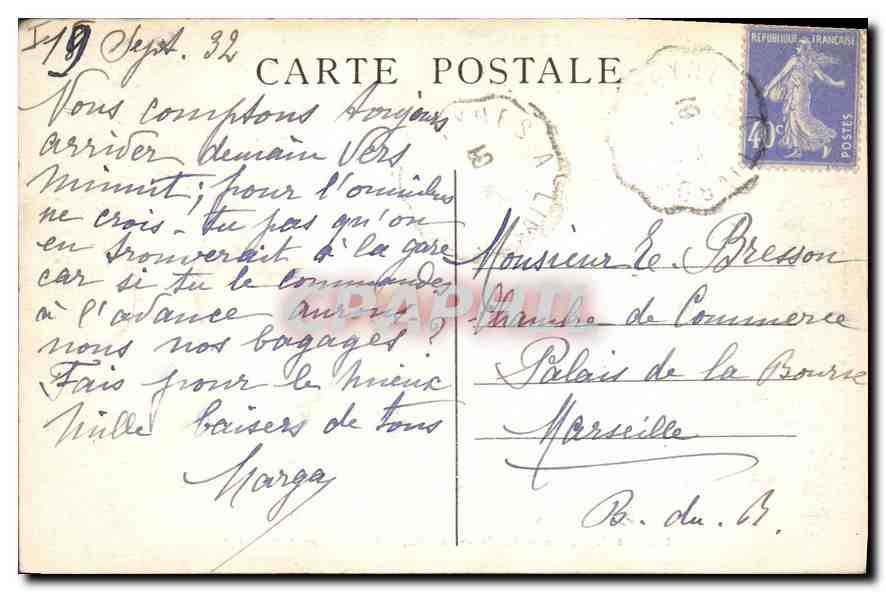 19 Sept. 32
CARTE POSTALE
Nous comptons toujours
arriver demain vers
minuit; pour l'omnibus
ne crois-tu pas qu'on
en trouverait à la gare
car si tu le commandes
à l'avance aurons
nous nos bagages?
Fais pour le mieux
Mille baisers de tous
Marga
REPUBLIQUE FRANCAISE
40c
POSTES
18
18
Monsieur E. Bresson
Chambre de Commerce
Palais de la Bourse
Marseille
B. du. R.
CPAPHIL